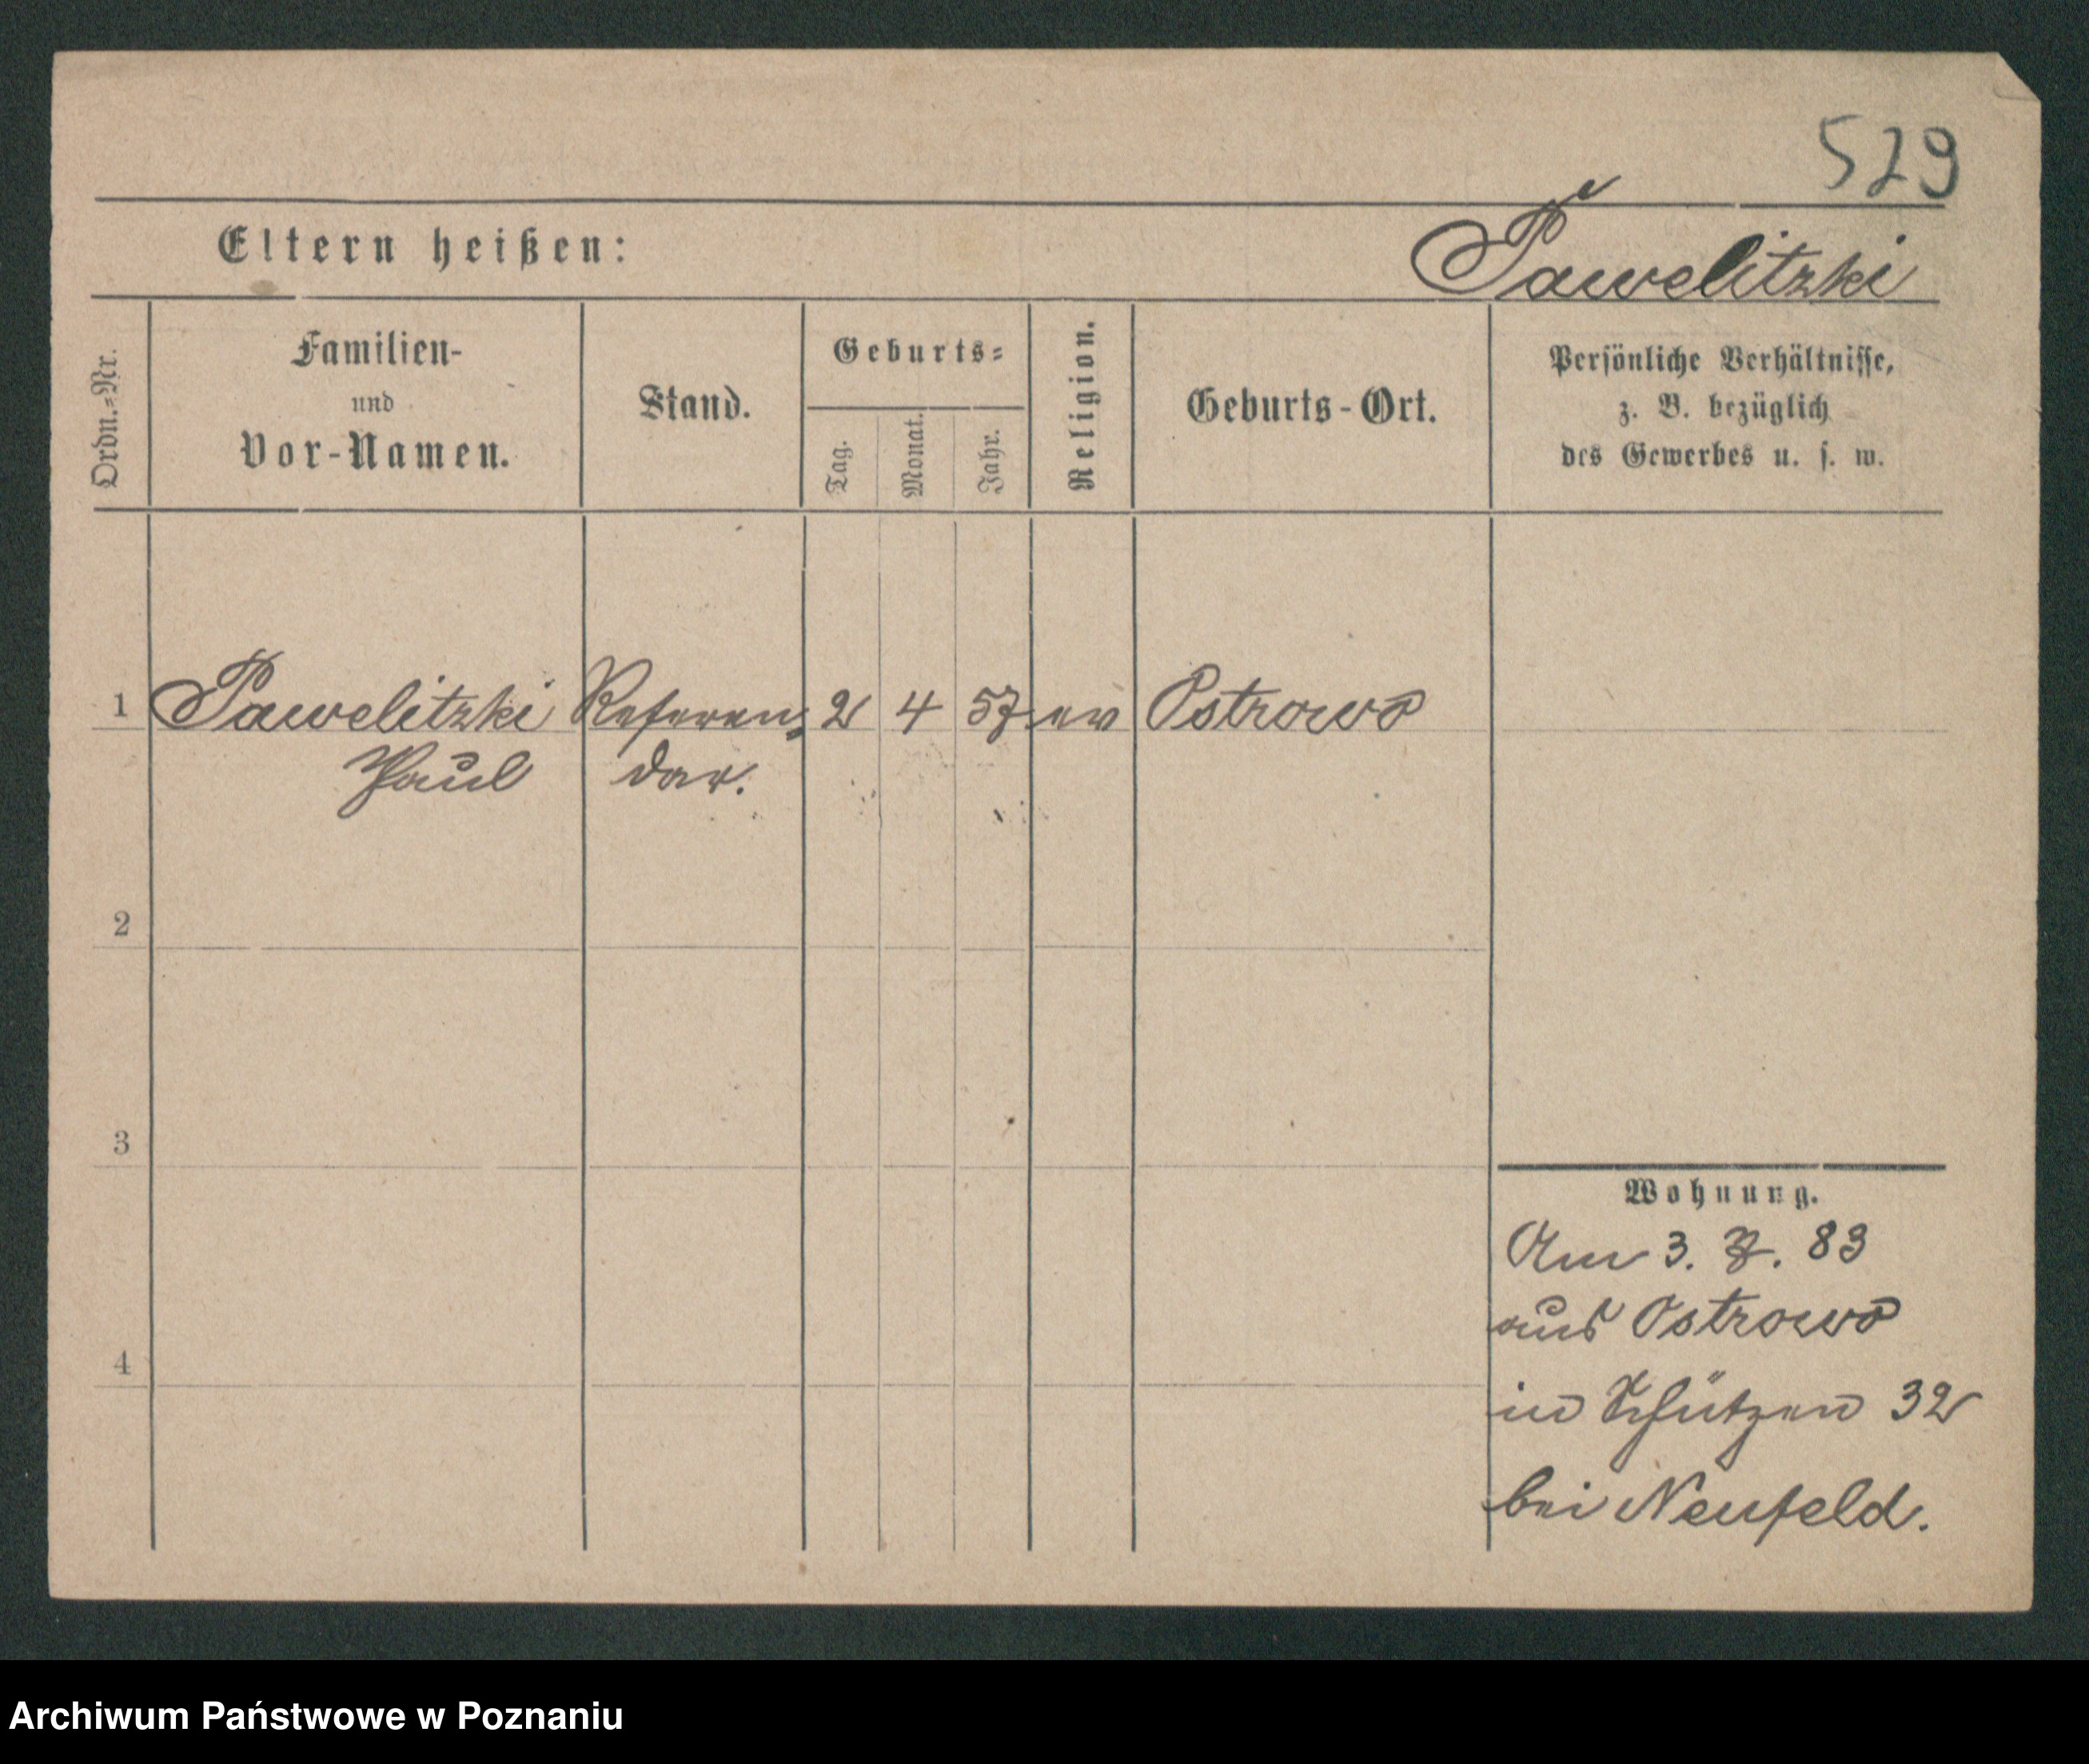 529
Eltern heißen:
Pawelitzki
Ordn.=Nr.
Familien-
und
Vor-Namen.
Stand.
Geburts=
Tag.
Monat.
Jahr.
Religion.
Geburts-Ort.
Persönliche Verhältnisse,
z. B. bezüglich
des Gewerbes u. s. w.
1 Pawelitzki Referen= 2 4 57 ev Ostrowo
Paul dar.
2
3
4
Wohnung.
Am 3. 7. 83
aus Ostrowo
in Schützen 32
bei Neufeld.
Archiwum Państwowe w Poznaniu